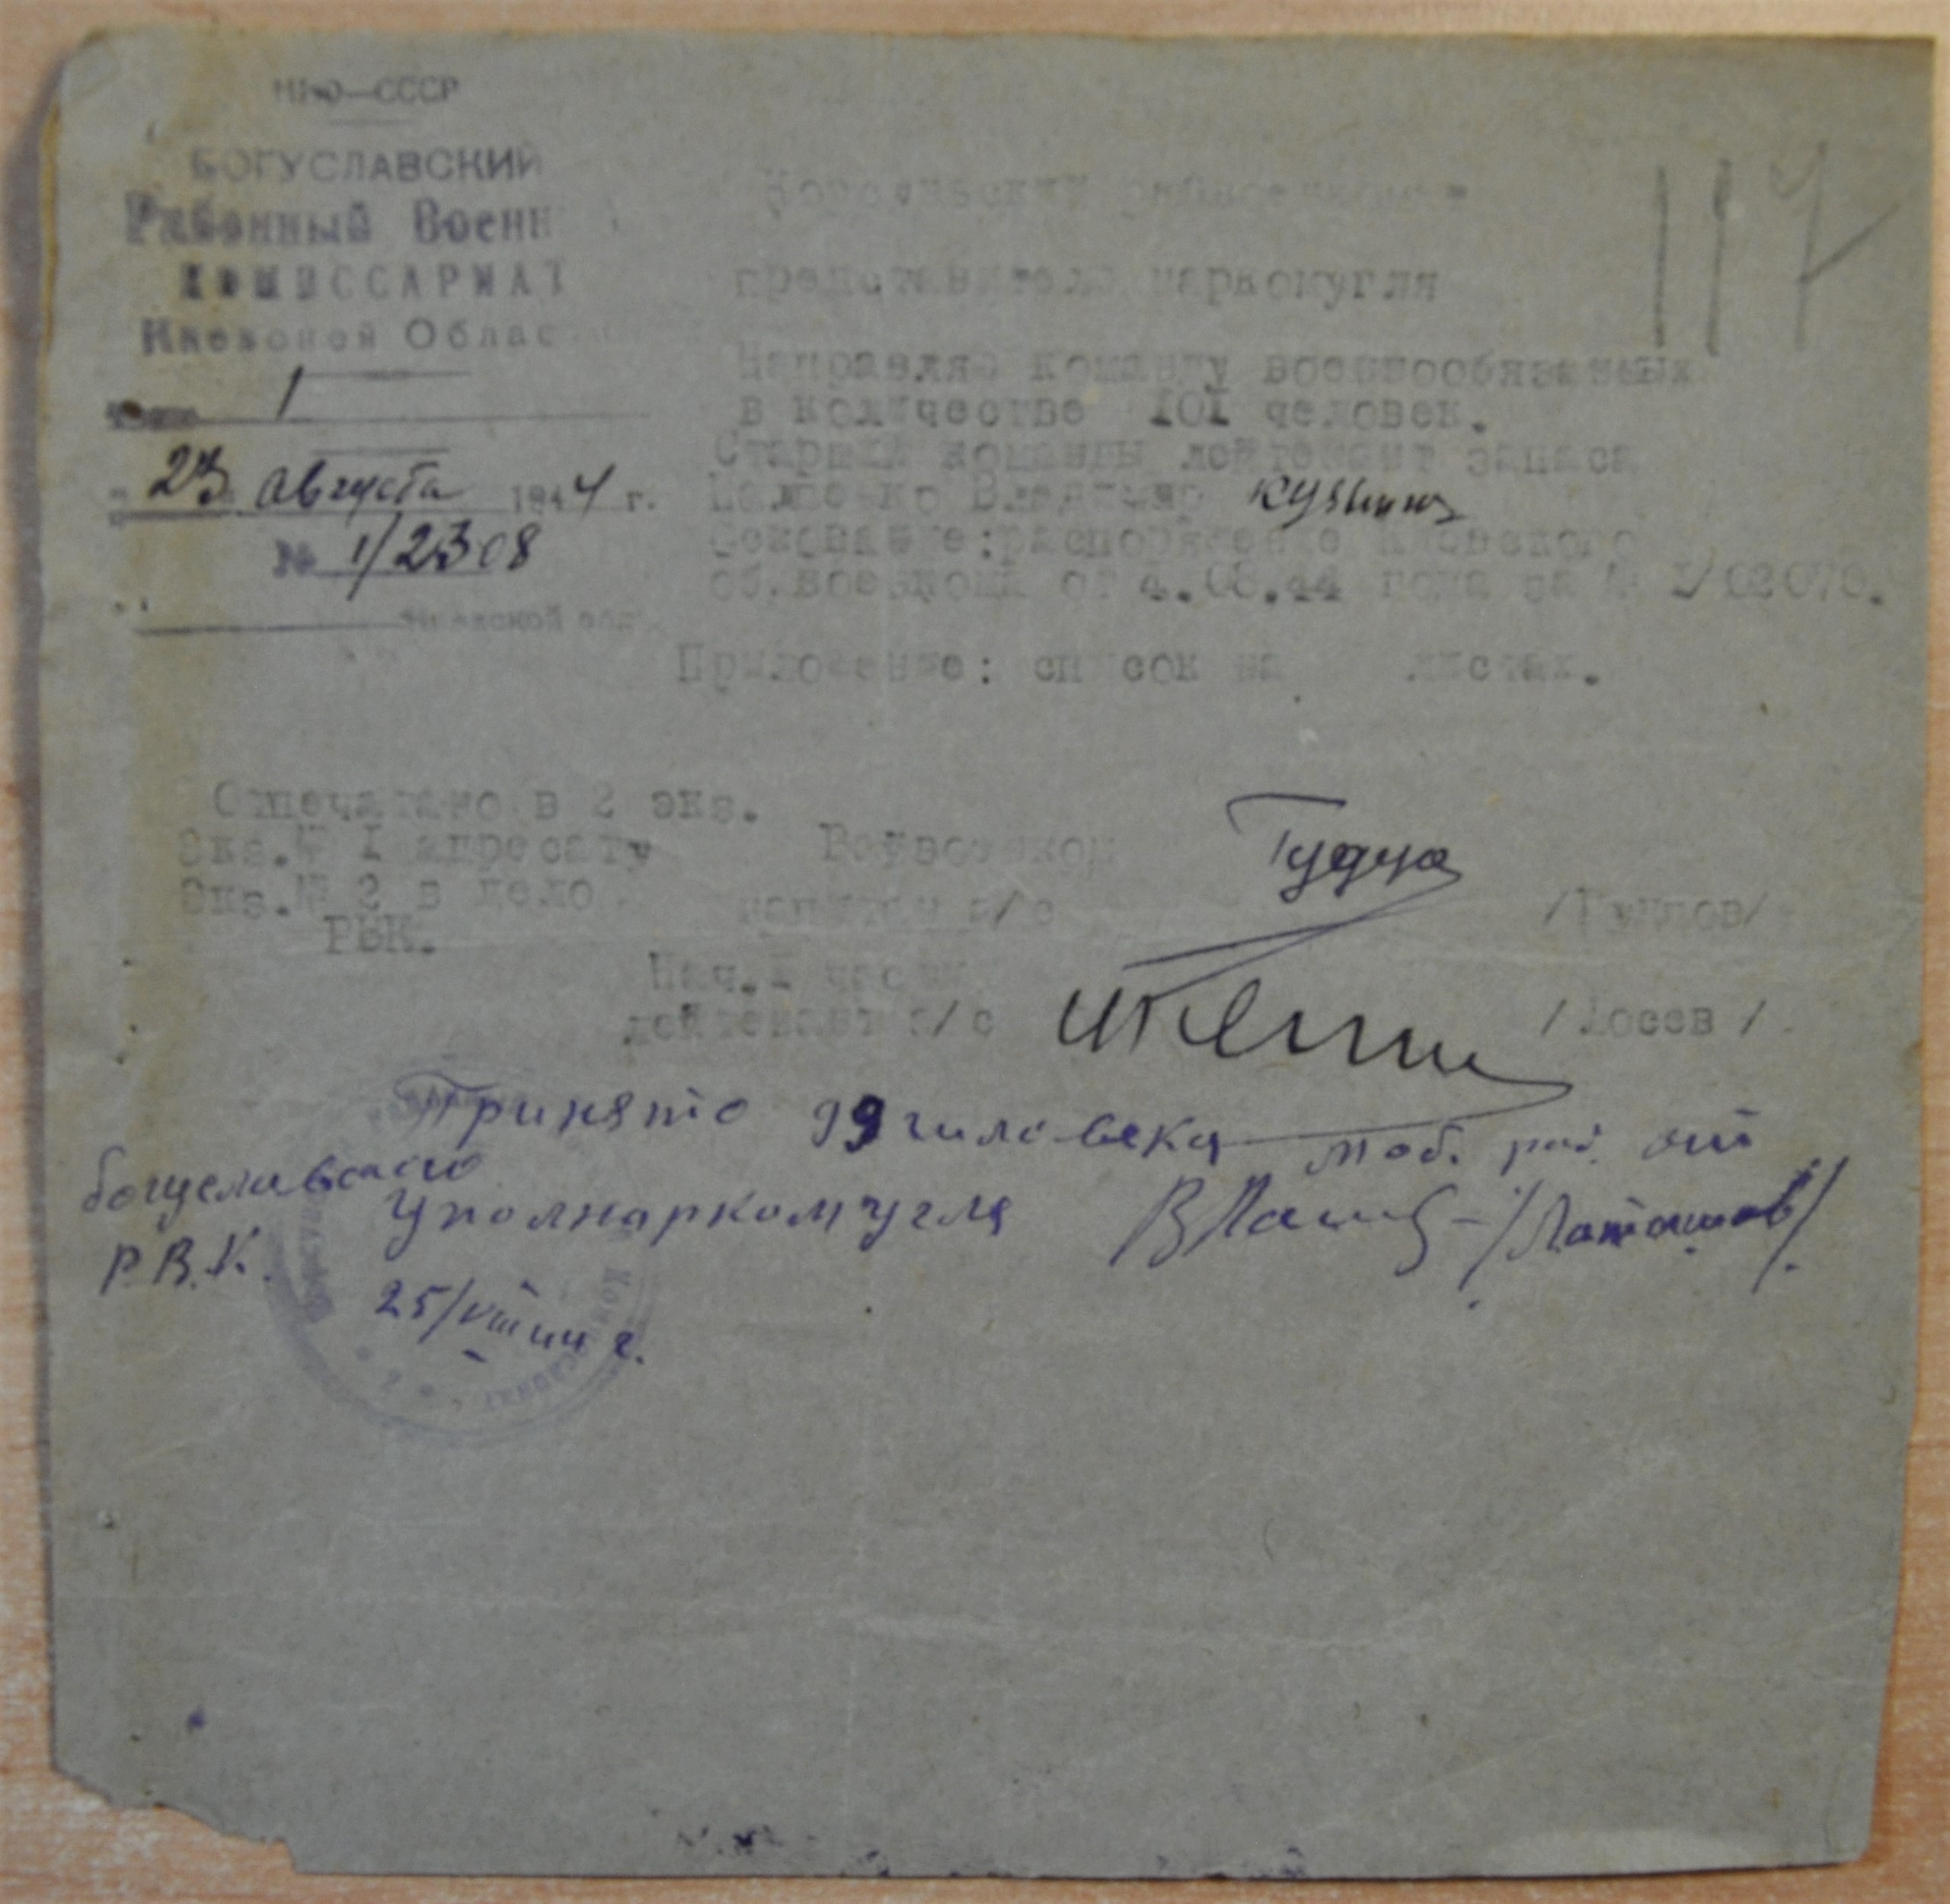 НКО—СССР
БОГУСЛАВСКИЙ
Районный Военн
КОМИССАРИАТ
Киевской Облас
1
23 августа 1944 г.
№ 1/2308
Киевской обл.
117
представителю наркомугля
Направляю команду военнообязанных
в количестве 101 человек.
Старший команды лейтенант запаса
Владимир
Основание: распоряжение Киевского
об.военкома от 4.08.44 года за № 1/02070.
Приложение: список на листах.
Отпечатано в 2 экз.
Экз.№ 1 адресату
Экз.№ 2 в дело
РВК.
Райвоенком
капитан а/с
Нач.1 части
лейтенант а/с
/Лосев/
Принято 99 человека моб. от
богуславского
Р.В.К.
Уполнаркомугля
25/VIII 44 г.